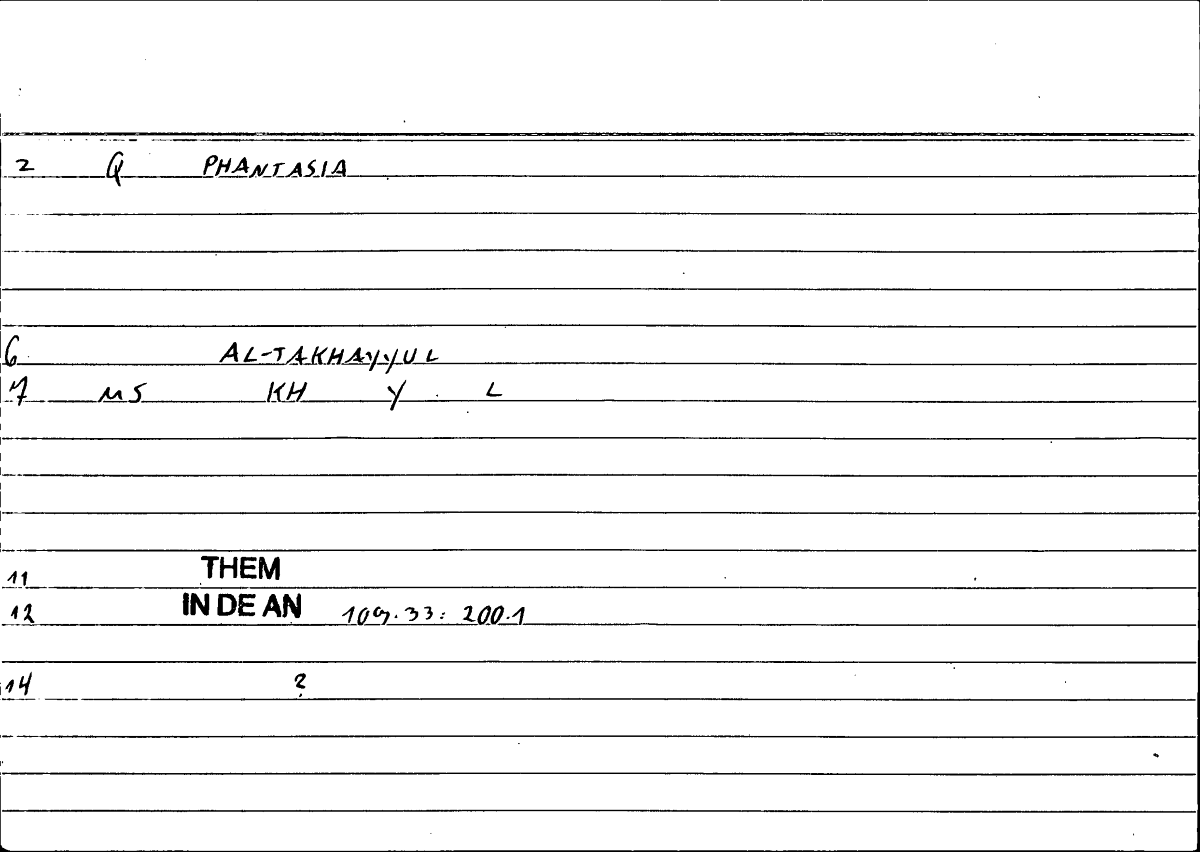 2 Q PHANTASIA
6 AL-TAKHAYYUL
7 MS KH Y L
11 THEM
12 IN DE AN 109.33: 200.1
14 ?